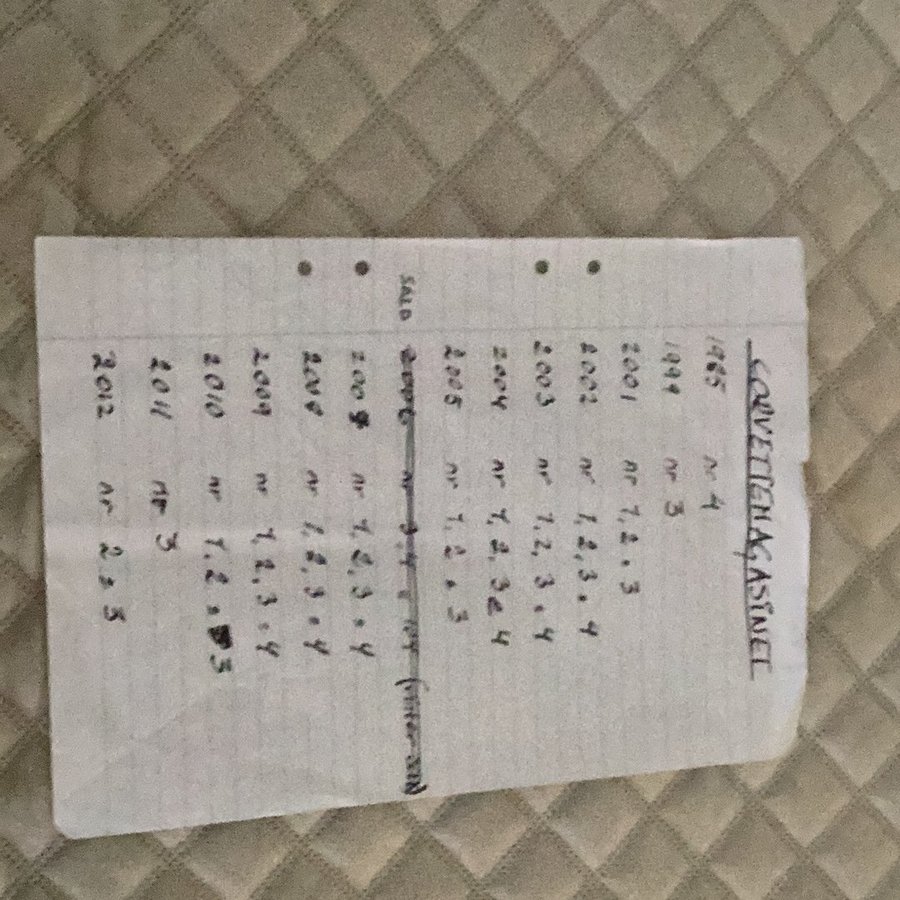 CORVETTEMAGASINET
1985 nr 4
1999 nr 3
2001 nr 1, 2 . 3
2002 nr 1, 2, 3 . 4
2003 nr 1, 2, 3 . 4
2004 nr 1, 2, 3 4
2005 nr 1, 2 . 3
SALD nr 3, 4
nr 1, 2, 3 . 4
nr 1, 2, 3 . 4
2009 nr 1 2, 3 . 4
2010 nr 1, 2 . 3
2011 nr 3
2012 nr 2 . 3